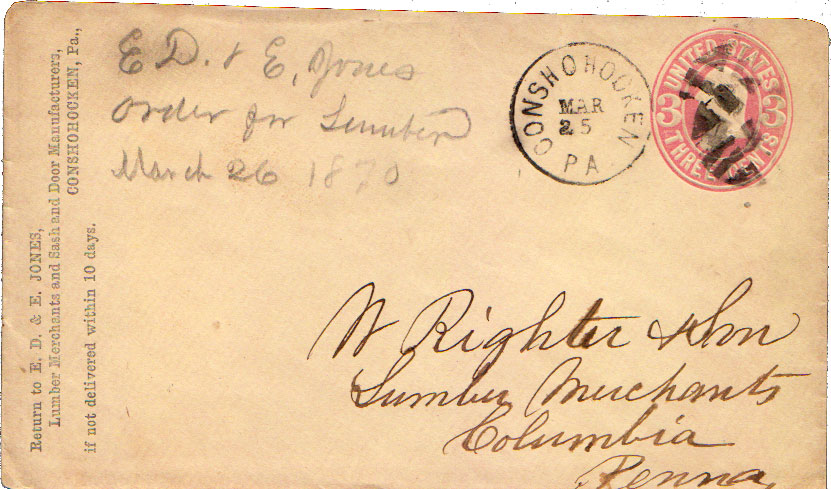 Return to E. D. & E. JONES,
Lumber Merchants and Sash and Door Manufacturers,
CONSHOHOCKEN, Pa.,
if not delivered within 10 days.
E D. & E, Jones
order for Lumber
March 26 1870
CONSHOHOCKEN
MAR
25
PA
UNITED STATES
3 3
THREE CENTS
W Righter & Son
Lumber Merchants
Columbia
Penna,